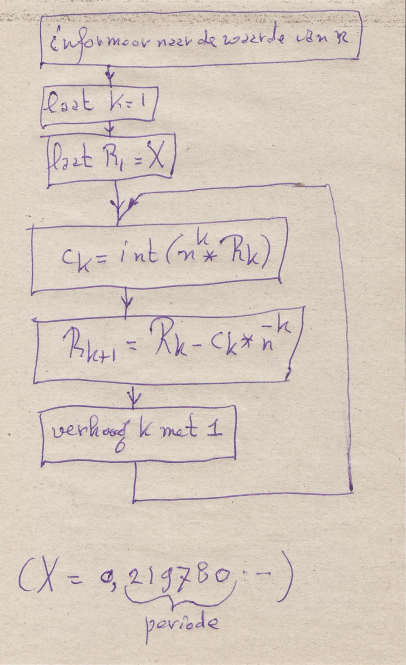 informeer naar de waarde van n
laat k=1
laat R₁ = X
cₖ = int (nᵏ * Rₖ)
Rₖ₊₁ = Rₖ - cₖ * n⁻ᵏ
verhoog k met 1
(X = 0,219780 ...)
periode